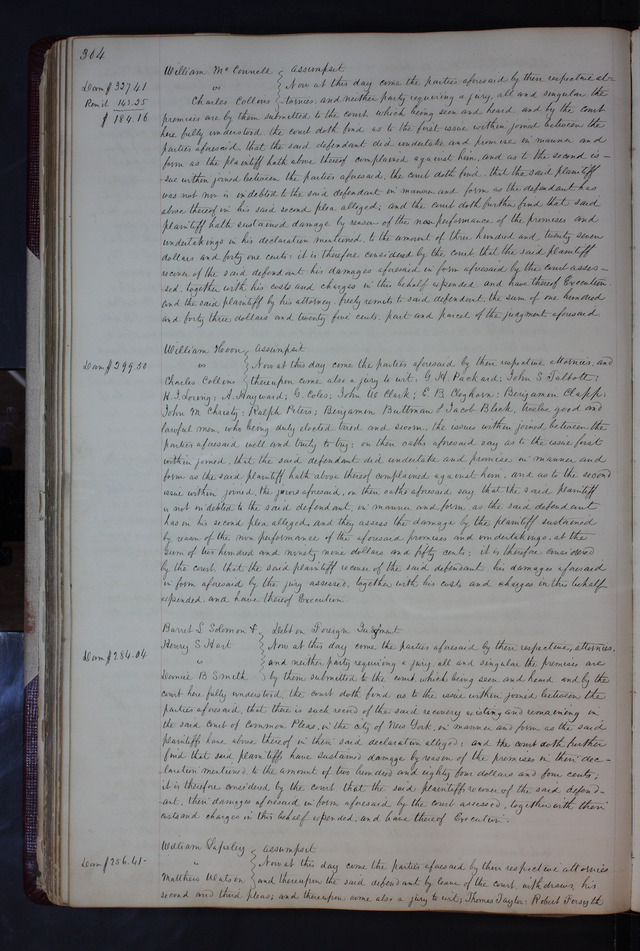 364
William McConnell } Assumpsit
Dam $327.41 vs { Now at this day come the parties aforesaid by their respective at-
Remd 143.25 Charles Collins tornies, and neither party requiring a jury, all and singular the
$184.16 premises are by them submitted to the court which being seen and heard and by the court
here fully understood the court doth find as to the first issue within joined between the
parties aforesaid that the said defendant did undertake and promise in manner and
form as the plaintiff hath above thereof complained against him, and as to the second is-
sue within joined between the parties aforesaid, the court doth find that the said plaintiff
was not nor is indebted to the said defendant in manner and form as the defendant has
above thereof in his said second plea alleged; and the court doth further find that said
plaintiff hath sustained damage by reason of the non performance of the premises and
undertakings in his declaration mentioned to the amount of three hundred and twenty seven
dollars and forty one cents: it is therefore considered by the court that the said plaintiff
recover of the said defendant his damages aforesaid in form aforesaid by the court asses-
sed, together with his costs and charges in this behalf expended and have thereof Execution.
and the said plaintiff by his attorney freely remits to said defendant the sum of one hundred
and forty three dollars and twenty five cents, part and parcel of the judgment aforesaid
William Hoon } Assumpsit
Dam $299.50 vs { Now at this day come the parties aforesaid by their respective attornies, and
Charles Collins thereupon come also a jury to wit; G. H. Packard; John S Talbott;
H. I. Loring; A. Hayward; G. Coles; John W Clark; E B Cleghorn; Benjamin Clapp;
John M Christy; Ralph Peters; Benjamin Buttman & Jacob Black, twelve good and
lawful men, who being duly elected tried and sworn, the issues within joined between the
parties aforesaid well and truly to try; on their oaths aforesaid say as to the issue first
within joined, that the said defendant did undertake and promise in manner and
form as the said plaintiff hath above thereof complained against him, and as to the second
issue within joined, the jurors aforesaid, on their oaths aforesaid say that the said plaintiff
is not indebted to the said defendant, in manner and form as the said defendant
has in his second plea alleged, and they assess the damage by the plaintiff sustained
by reason of the non performance of the aforesaid promises and undertakings, at the
sum of two hundred and ninety nine dollars and fifty cents; it is therefore considered
by the court, that the said plaintiff recover of the said defendant his damages aforesaid
in form aforesaid by the jury assessed, together with his costs and charges in this behalf
expended and have thereof Execution
Barret L Solomon & } Debt on Foreign Judgment
Henry S Hart Now at this day come the parties aforesaid by their respective, attornies,
Dam $284.04 vs { and neither party requiring a jury, all and singular the premises are
B Smith by them submitted to the court which being seen and heard and by the
court here fully understood, the court doth find as to the issue within joined between the
parties aforesaid, that there is such record of the said recovery existing and remaining in
the said Court of Common Pleas, in the city of New York, in manner and form as the said
plaintiffs have above thereof in their said declaration alleged; and the court doth further
find that said plaintiffs have sustained damage by reason of the premises in their dec-
laration mentioned to the amount of two hundred and eighty four dollars and four cents;
it is therefore considered by the court that the said plaintiffs recover of the said defend-
ant, their damages aforesaid in form aforesaid by the court assessed, together with their
costs and charges in this behalf expended, and have thereof Execution.
William } Assumpsit
Dam $256.41- " { Now at this day come the parties aforesaid by their respective attornies
Matthew Watson and thereupon the said defendant by leave of the court, withdraws his
second and third pleas; and thereupon come also a jury to wit; Thomas Taylor; Robert Forsyth